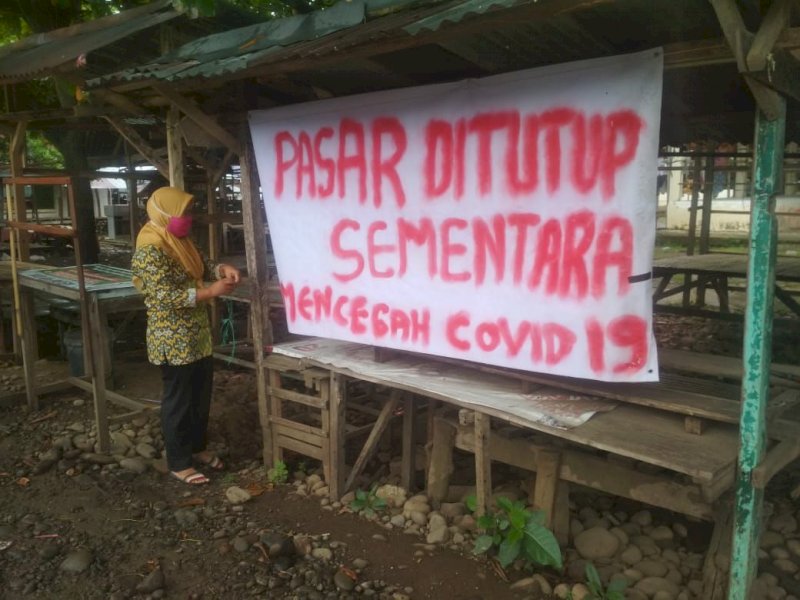 PASAR DITUTUP
SEMENTARA
MENCEGAH COVID 19